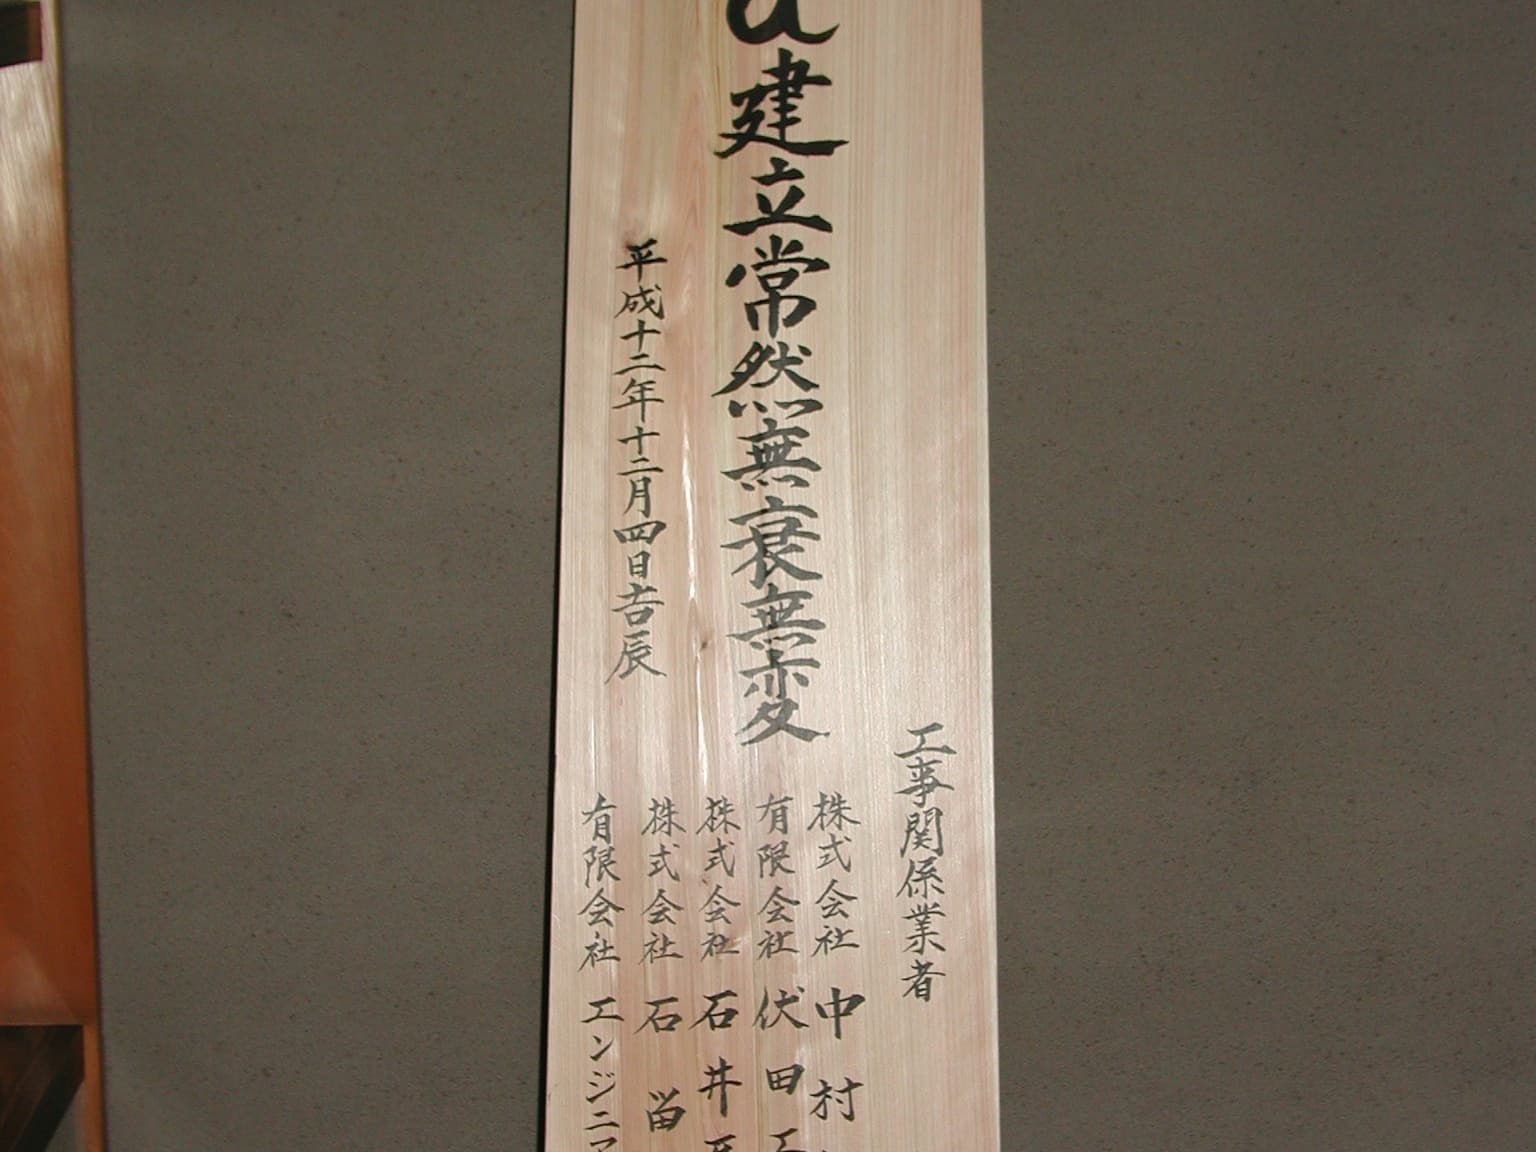 工事関係業者
株式会社 中村
有限会社 伏田工
建立常然無衰無変
株式会社 石井
株式会社 石留
平成十二年十二月四日吉辰
有限会社 エンジニア